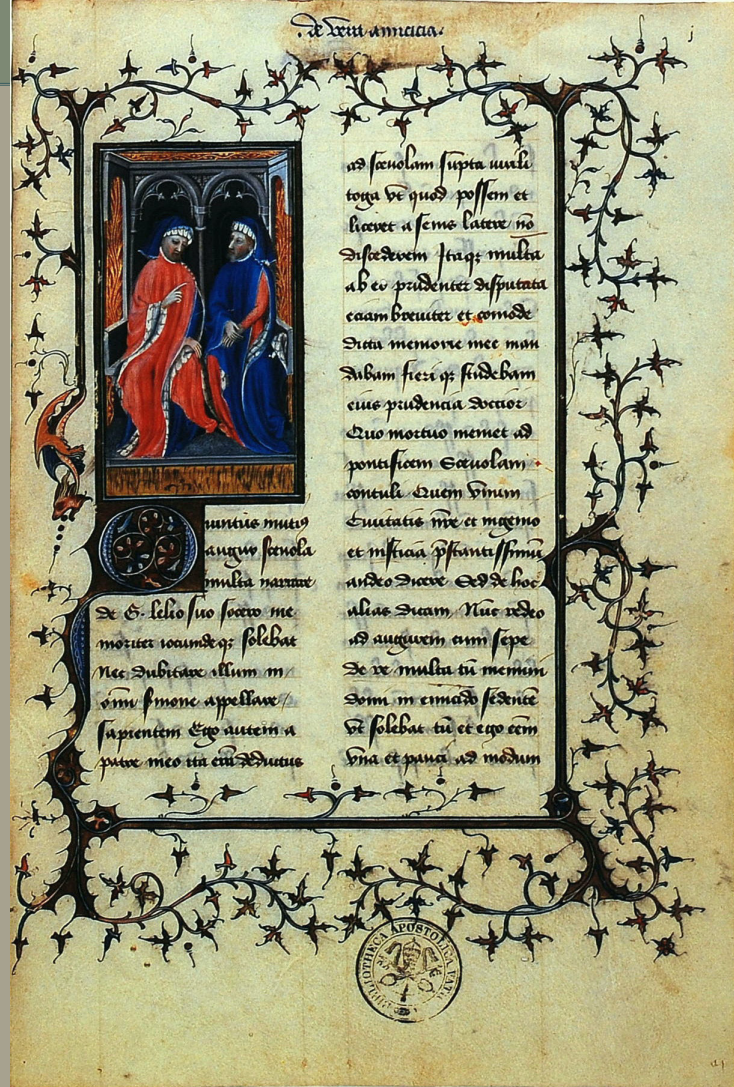 .de vera amicicia.
j
Quintus mutius
augur scevola
multa narrare
de G. lelio suo socero me
moriter iocundeqz solebat
Nec dubitare illum in
omni sermone appellare
sapientem Ego autem a
patre meo ita eram deductus
ad scevolam supta virili
toga vt quod possem et
liceret a senis latere no
discederem Itaqz multa
ab eo prudenter disputata
eciam breuiter et comode
dicta memorie mee man
dabam fieri qz studebam
eius prudencia doccior
Quo mortuo memet ad
pontificem Scevolam
contuli Quem vnum
Ciuitatis nre et ingenio
et iusticia pstantissimum
audeo dicere Sed de hoc
alias dicam Nuc redeo
ad augurem cum sepe
de re multa tu memini
domi in emiciclo sedente
vt solebat tu et ego eem
vna et pauci ad modum
BIBLIOTHECA APOSTOLICA VATIC